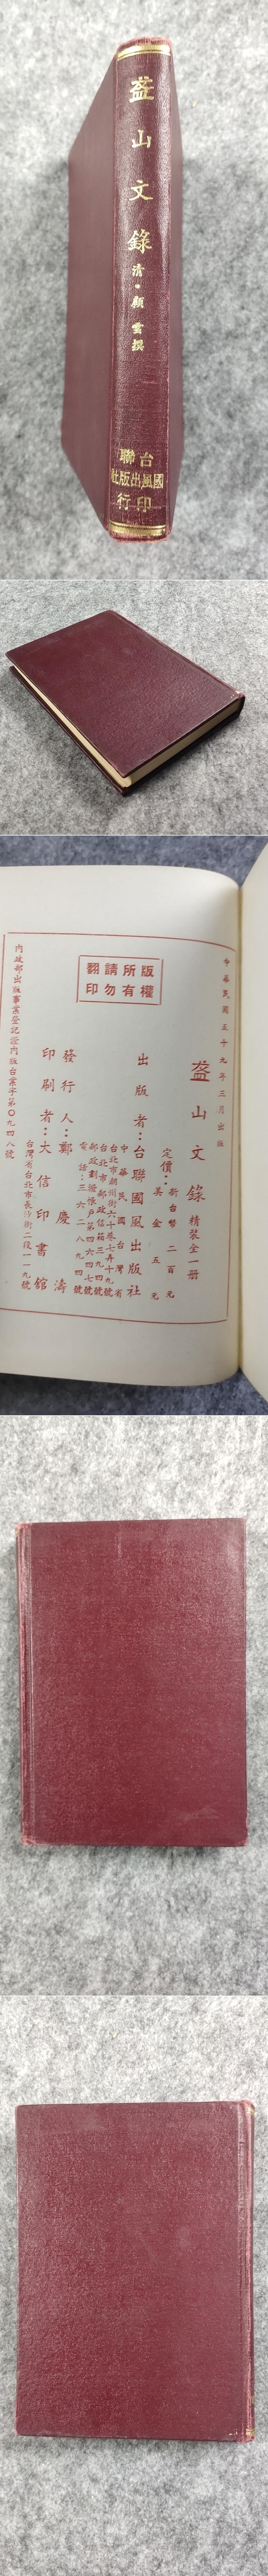 盋山文錄
清•顧雲撰
台聯
國風出版社
印行
中華民國五十九年三月出版
盋山文錄 精裝全一册
定價：新台幣二百元
美金五元
出版者：台聯國風出版社
中華民國台灣省
電話：三六二八九四號
發行人：鄭慶濤
印刷者：大信印書館
台灣省台北市長沙街二段一一九號
內政部出版事業登記證內版台業字第〇九四八號
版權所有
請勿翻印